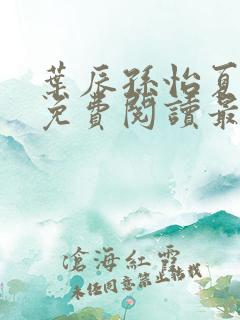 葉辰孫怡夏
免費閱讀最
滄海紅雪
未經同意禁止轉載